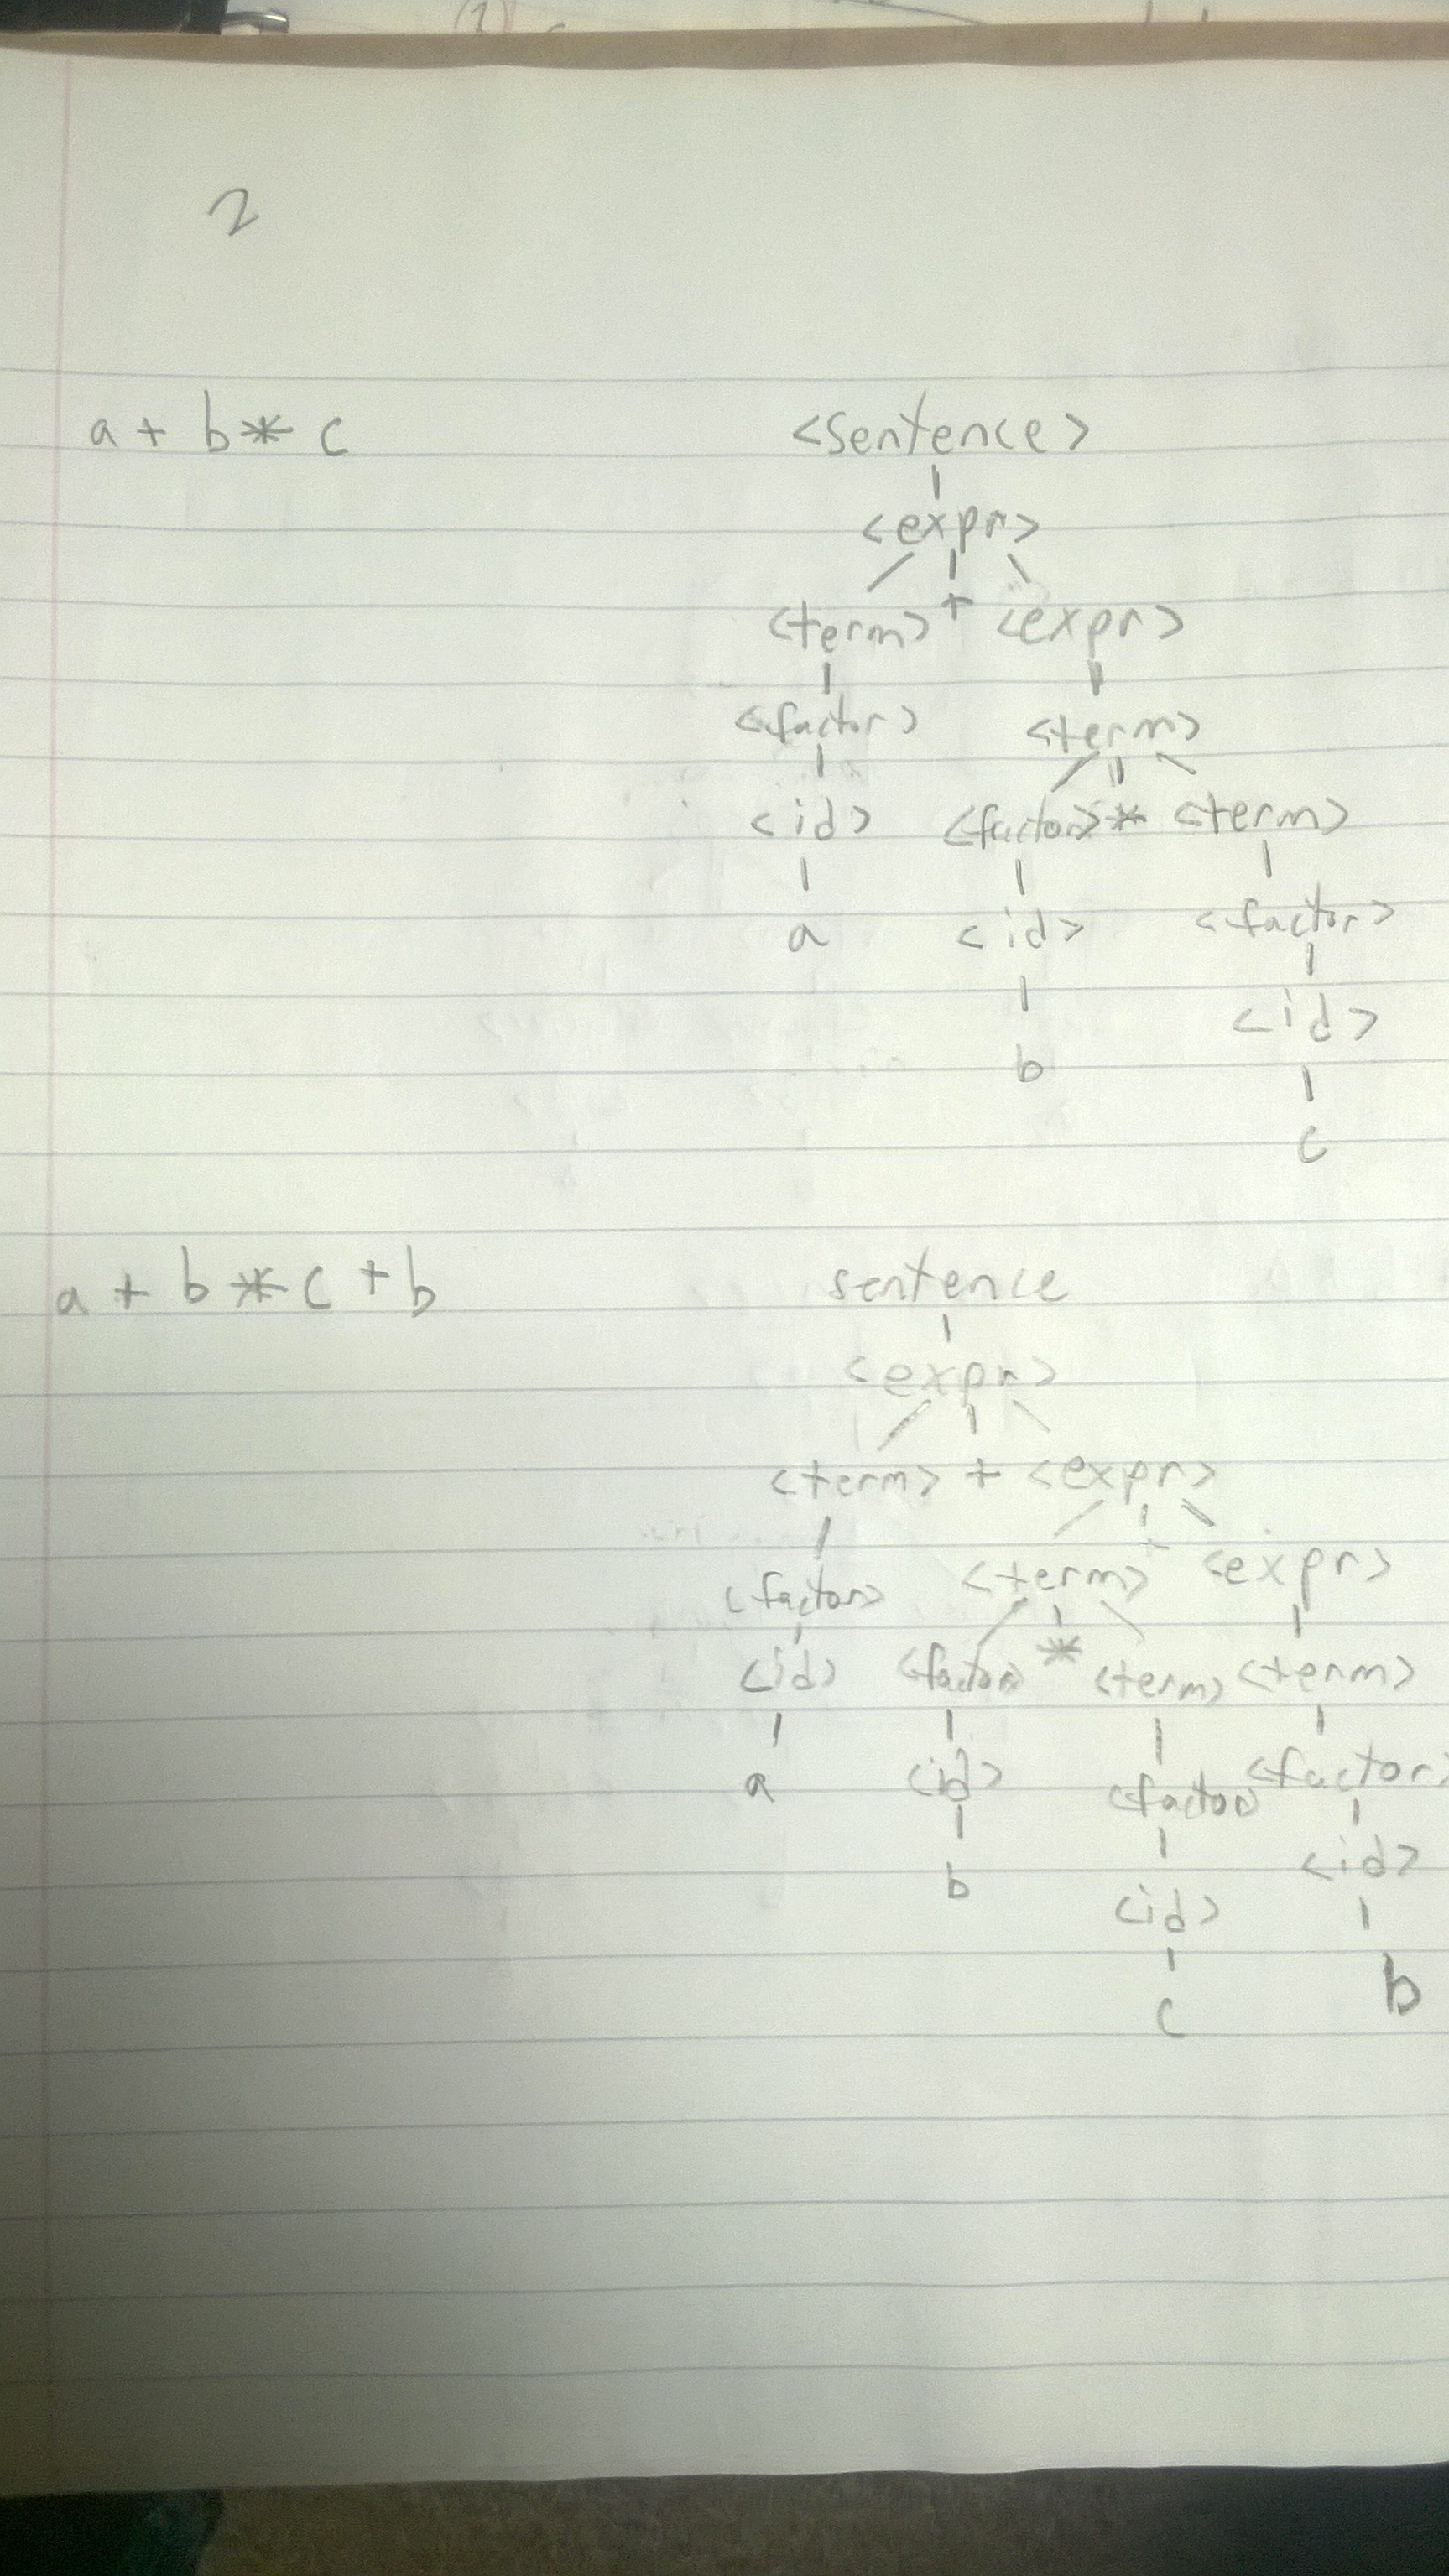 (1)
2
a + b * c <sentence>
<expr>
<term> + <expr>
<factor> <term>
<id> <factor> * <term>
a <id> <factor>
b <id>
c
a + b * c + b sentence
<expr>
<term> + <expr>
<factor> <term> + <expr>
<id> <factor> * <term> <term>
a <id> <factor> <factor>
b <id> <id>
c b